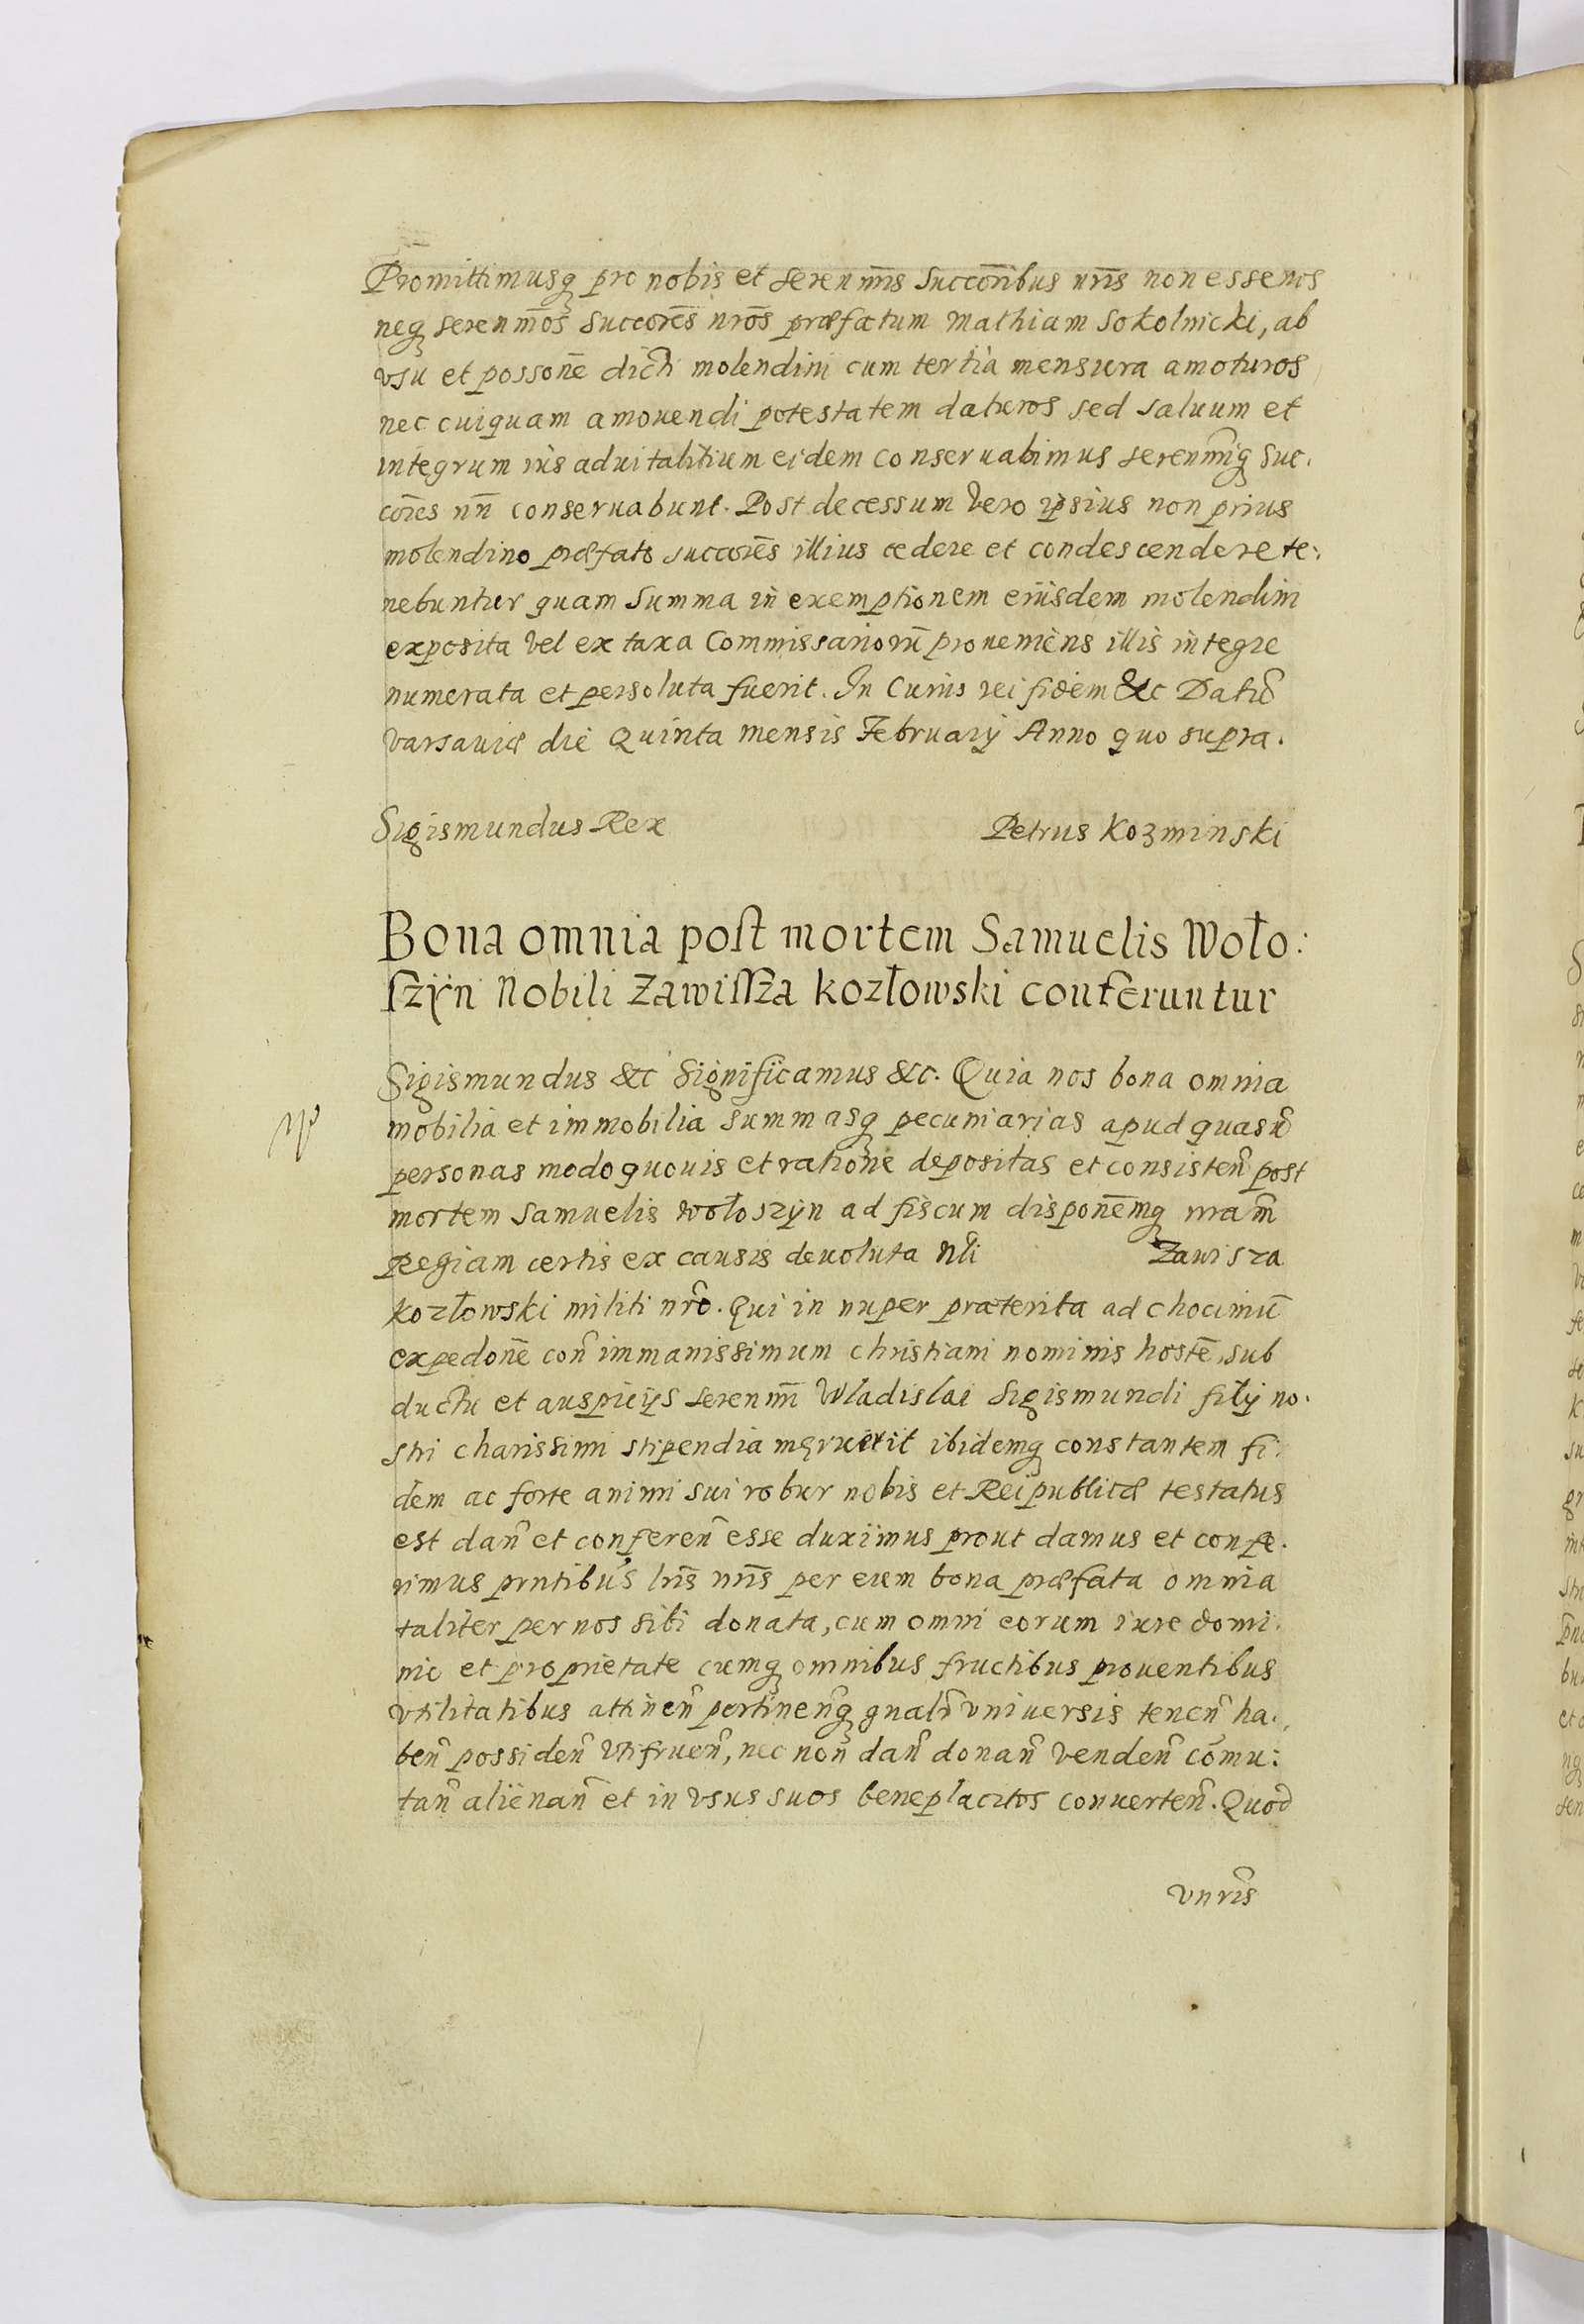 Promittimusq₃ pro nobis et serenm̅is succorībus nr̅is non esse nos
neq₃ serenm̅os succorēs nrōs præfatum Mathiam Sokolnicki, ab
vsu et possonē dicti molendini cum tertia mensura amoturos
nec cuiquam amouendi potestatem daturos sed saluum et
integrum ius aduitalitium eidem conseruabimus serenm̅iq₃ suc.
corēs nr̅i conseruabunt. Post decessum Vero ipsius non prius
molendino præfato succorēs illius cedere et condescendere te:
nebuntur quam summa in exemptionem eiusdem molendini
exposita vel ex taxa Commissariorū proueniens illis integre
numerata et persoluta fuerit. In Cuius rei fidem &c Datū
Varsauiæ die Quinta mensis February Anno quo supra.
Sigismundus Rex Petrus Kozminski
Bona omnia post mortem Samuelis Woło:
szÿn Nobili Zawissza Kozłowski conferuntur
Sigismundus &c Significamus &c. Quia nos bona omnia
mobilia et immobilia summasq₃ pecuniarias apud quasū
personas modo quouis et ratione depositas et consisten̄ post
mortem Samuelis Wołoszÿn ad fiscum disponēmq₃ nram̄
Regiam certis ex causis deuoluta Nli Zawisza
Kozłowski militi nrō. Qui in nuper præterita ad Chocimū
expedonē con̄ immanissimum christiani nominis hostē, sub
ductu et auspicÿs serenm̅i Wladislai Sigismundi filÿ no.
stri charissimi stipendia meruerit ibidemq₃ constantem fi.
dem ac forte animi sui robur nobis et Reipublicæ testatus
est dan̄ et conferen̄ esse duximus prout damus et confe.
rimus prntibus lris̄ nris̄ per eum bona præfata omnia
taliter per nos sibi donata, cum omni eorum iure domi.
nio et proprietate cumq₃ omnibus fructibus prouentibus
vtilitatibus attinen̄ pertinen̄q₃ gnalr̄ vniuersis tenen̄ ha.
ben̄ possiden̄ vtifruen̄, nec non dan̄ donan̄ venden̄ cōmu:
tan̄ alienan̄ et in vsus suos beneplacitos conuerten̄. Quod
vnrīs